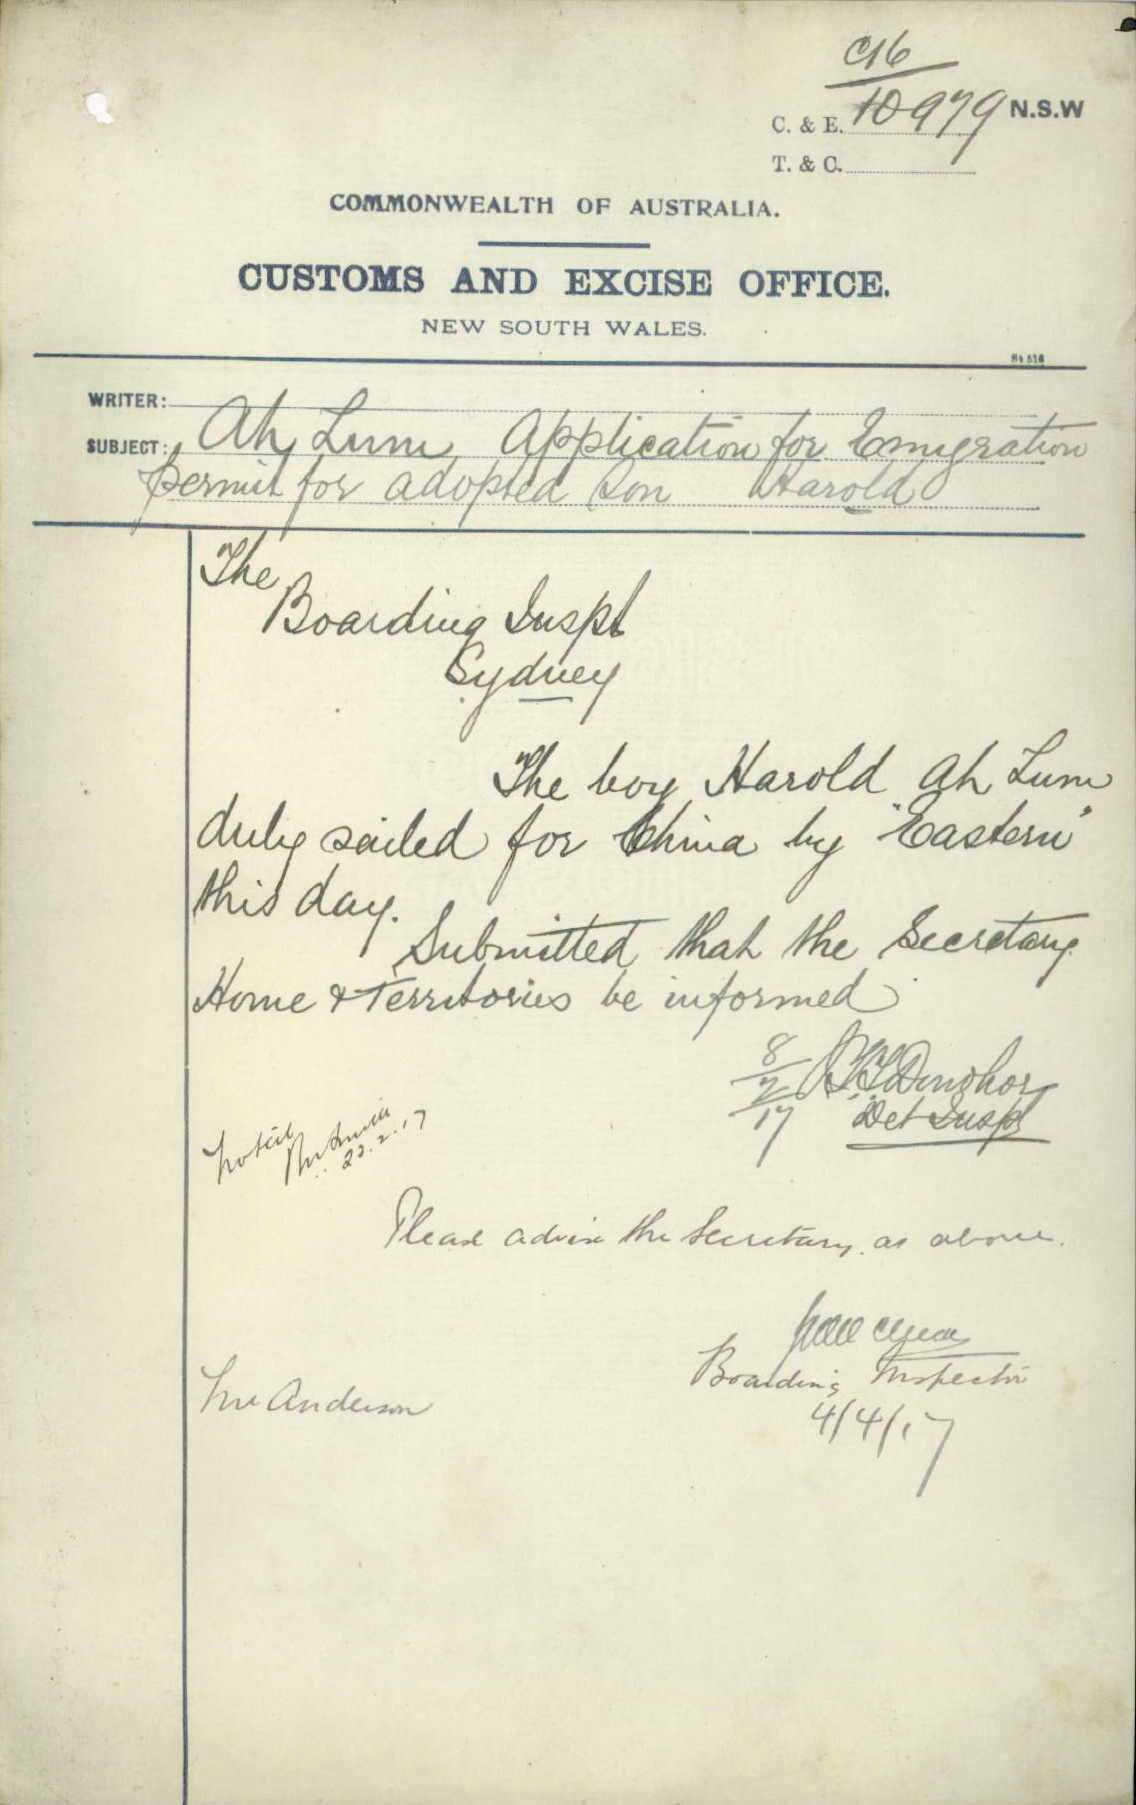 C16
C. & E. 10979 N.S.W
T. & C.
COMMONWEALTH OF AUSTRALIA.
CUSTOMS AND EXCISE OFFICE.
NEW SOUTH WALES.
WRITER:
SUBJECT: Ah Lum Application for Emigration
permit for adopted son Harold
The
Boarding Inspt
Sydney
The boy Harold Ah Lum
duly sailed for China by "Eastern"
this day.
Submitted that the Secretary
Home & Territories be informed
8/2/17 Donohoe
Det Inspr
Noted
22.2.17
Please advise the Secretary as above.
Boarding Inspector
Mr Anderson
4/4/17